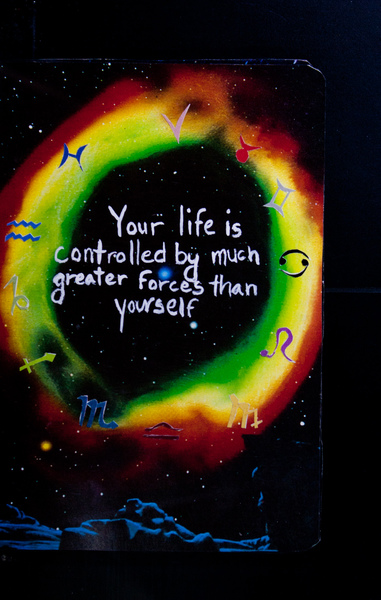 Your life is
controlled by much
greater forces than
yourself